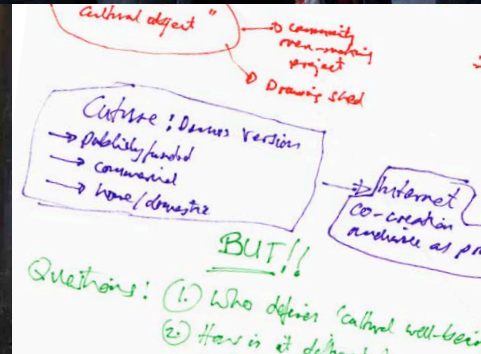 cultural object"
→ community
oven-making
project
→ Drawing shed
Culture: Demos version
→ publicly funded
→ commercial
→ home/domestic
→ Internet
co-creation
audience as pro
BUT!!
Questions: (1.) Who defines 'cultural well-bein
(2.) How is it